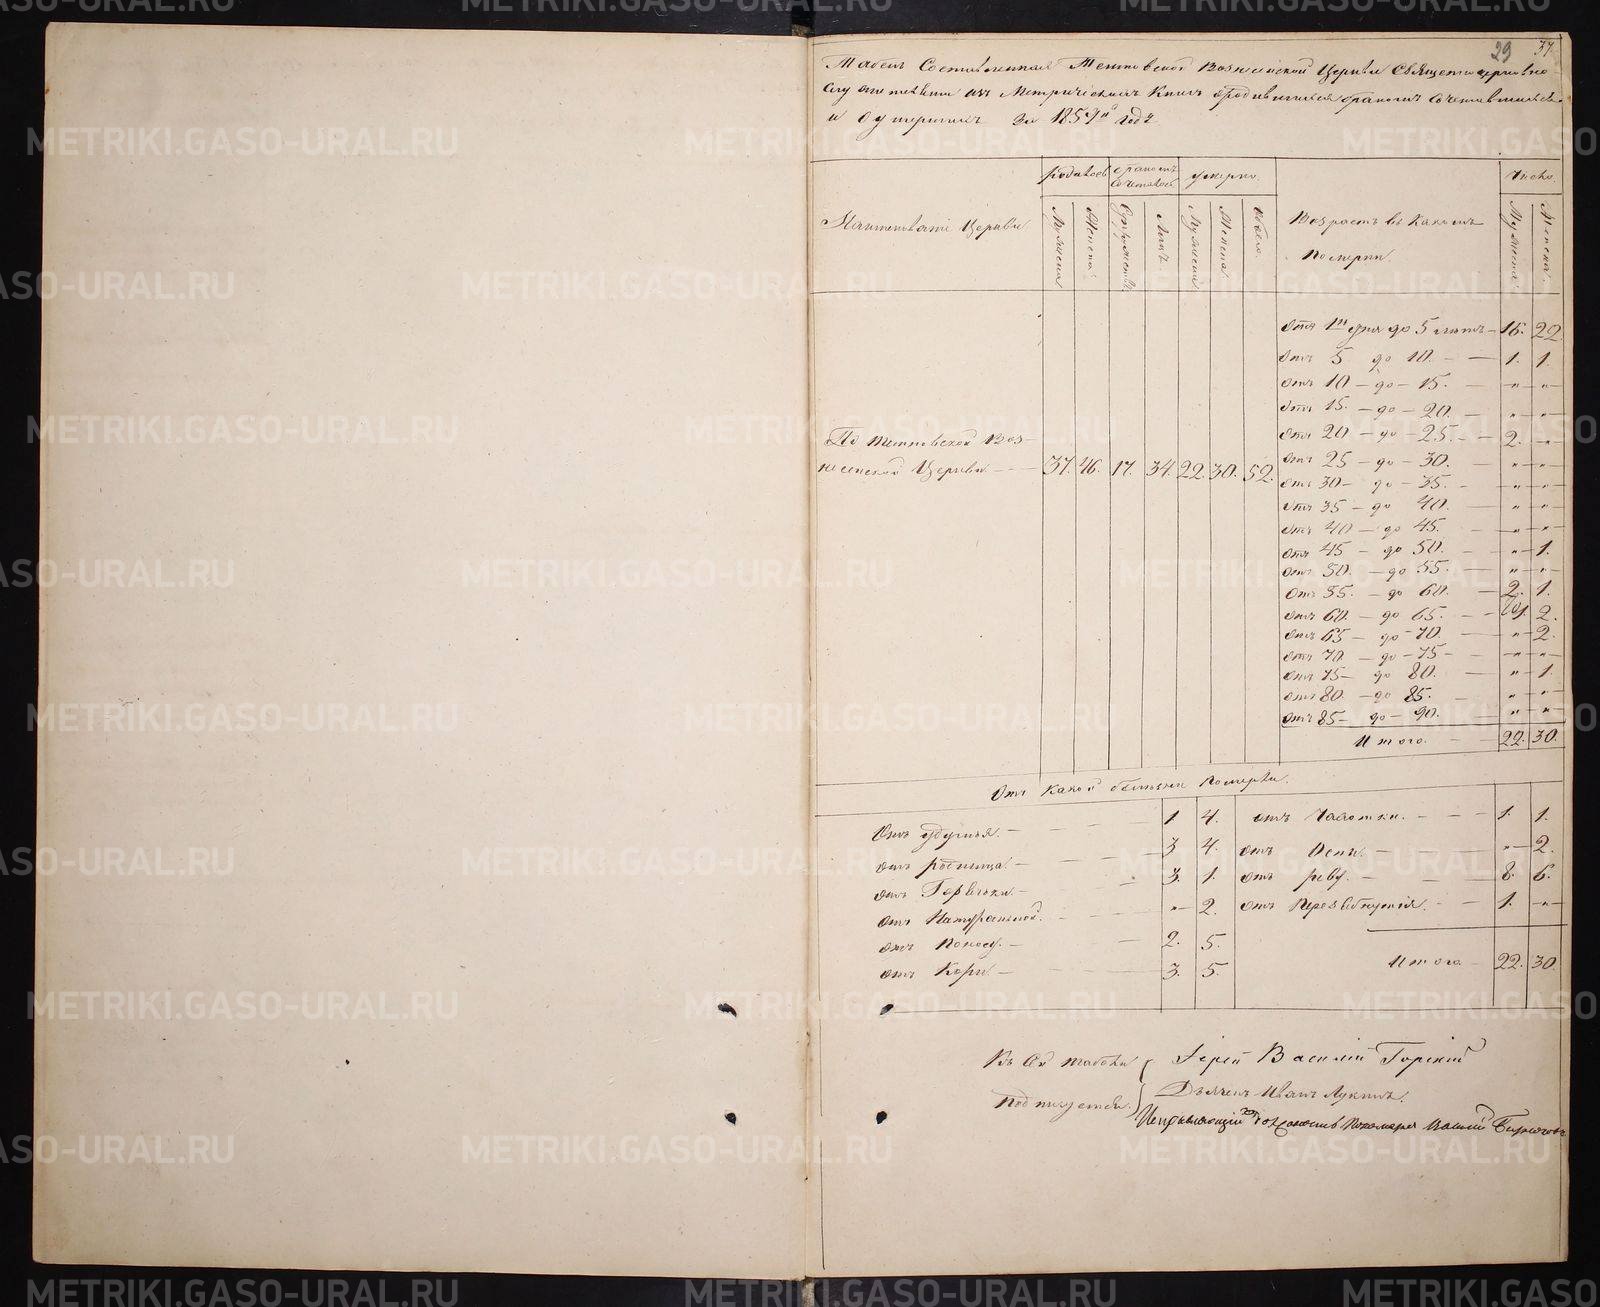 29 37.
Табель Составленная Теновской Вознесенской Церкви Священноцерковно-
служителями изъ Метрическихъ Книгъ о родившихся бракомъ сочетавшихся
и о умершихъ за 1859й годъ
родилось бракомъ сочеталось умерло. Число.
Наименованіе Церкви Мужеска Женска Супружествъ Лицъ Мужеска Женска Обоего. Возрастъ въ какомъ Померли. Мужеска Женска.
отъ 1го дня до 5 лѣтъ - 16. 22
отъ 5 до 10. - - 1. 1.
отъ 10 - до - 15. - „ - „ -
отъ 15. - до - 20. - „ - „ -
отъ 20 - до - 25. - - 2. - „ -
отъ 25 - до - 30. - „ - „ -
отъ 30 - до - 35. - „ - „ -
отъ 35 - до 40. - „ - „ -
отъ 40 - до 45. - „ - „ -
отъ 45 - до 50. - - „ - 1.
отъ 50. - до 55. - - „ - „ -
отъ 55. - до 60. - 2. 1.
отъ 60. - до 65. - - 1 2.
отъ 65 - до - 70. - „ - 2.
отъ 70 - до - 75 - - „ - „ -
отъ 75 - до 80. - „ - 1.
отъ 80. - до 85. - „ - „ -
отъ 85 - до - 90. - „ - „ -
Итого. - - 22. 30.
По Воз-
несенской Церкви - - - 37. 46. 17. 34. 22. 30. 52.
Отъ какой болѣзни Померли.
Отъ удушья. - - - - 1 4.
отъ родимца. - - - - 3 4.
отъ Горячки - - 3. 1.
отъ Натуральной. - - - „ - 2.
отъ Поносу. - - 2. 5.
отъ Кори - - - - 3. 5.
отъ Чахотки. - - - 1. 1.
отъ Оспы. - - - - „ - 2.
отъ реву. - - - 8. 6.
отъ - - 1. - „ -
Итого - 22. 30.
Къ сей табели
Подписуемся.
Іерей Василій Горскій
Дьячекъ Иванъ Лукинъ.
Исправляющій должность Пономаря